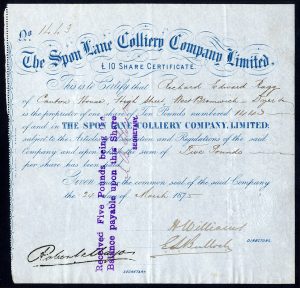 No. 1443
The Spon Lane Colliery Company Limited.
£10 SHARE CERTIFICATE.
This is to Certify that Richard Edward
of Canton House High Street West Bromwich
is the proprietor of one share of Ten Pounds numbered 1443
of and in THE SPON LANE COLLIERY COMPANY, LIMITED;
subject to the Articles of Association and Regulations of the said
Company and upon the sum of Five Pounds
per share has been
Given the common seal of the said Company
the 24 March 1875
H Williams
DIRECTORS.
SECRETARY
Received Five Pounds being
Balance payable upon this Share
SECRETARY.